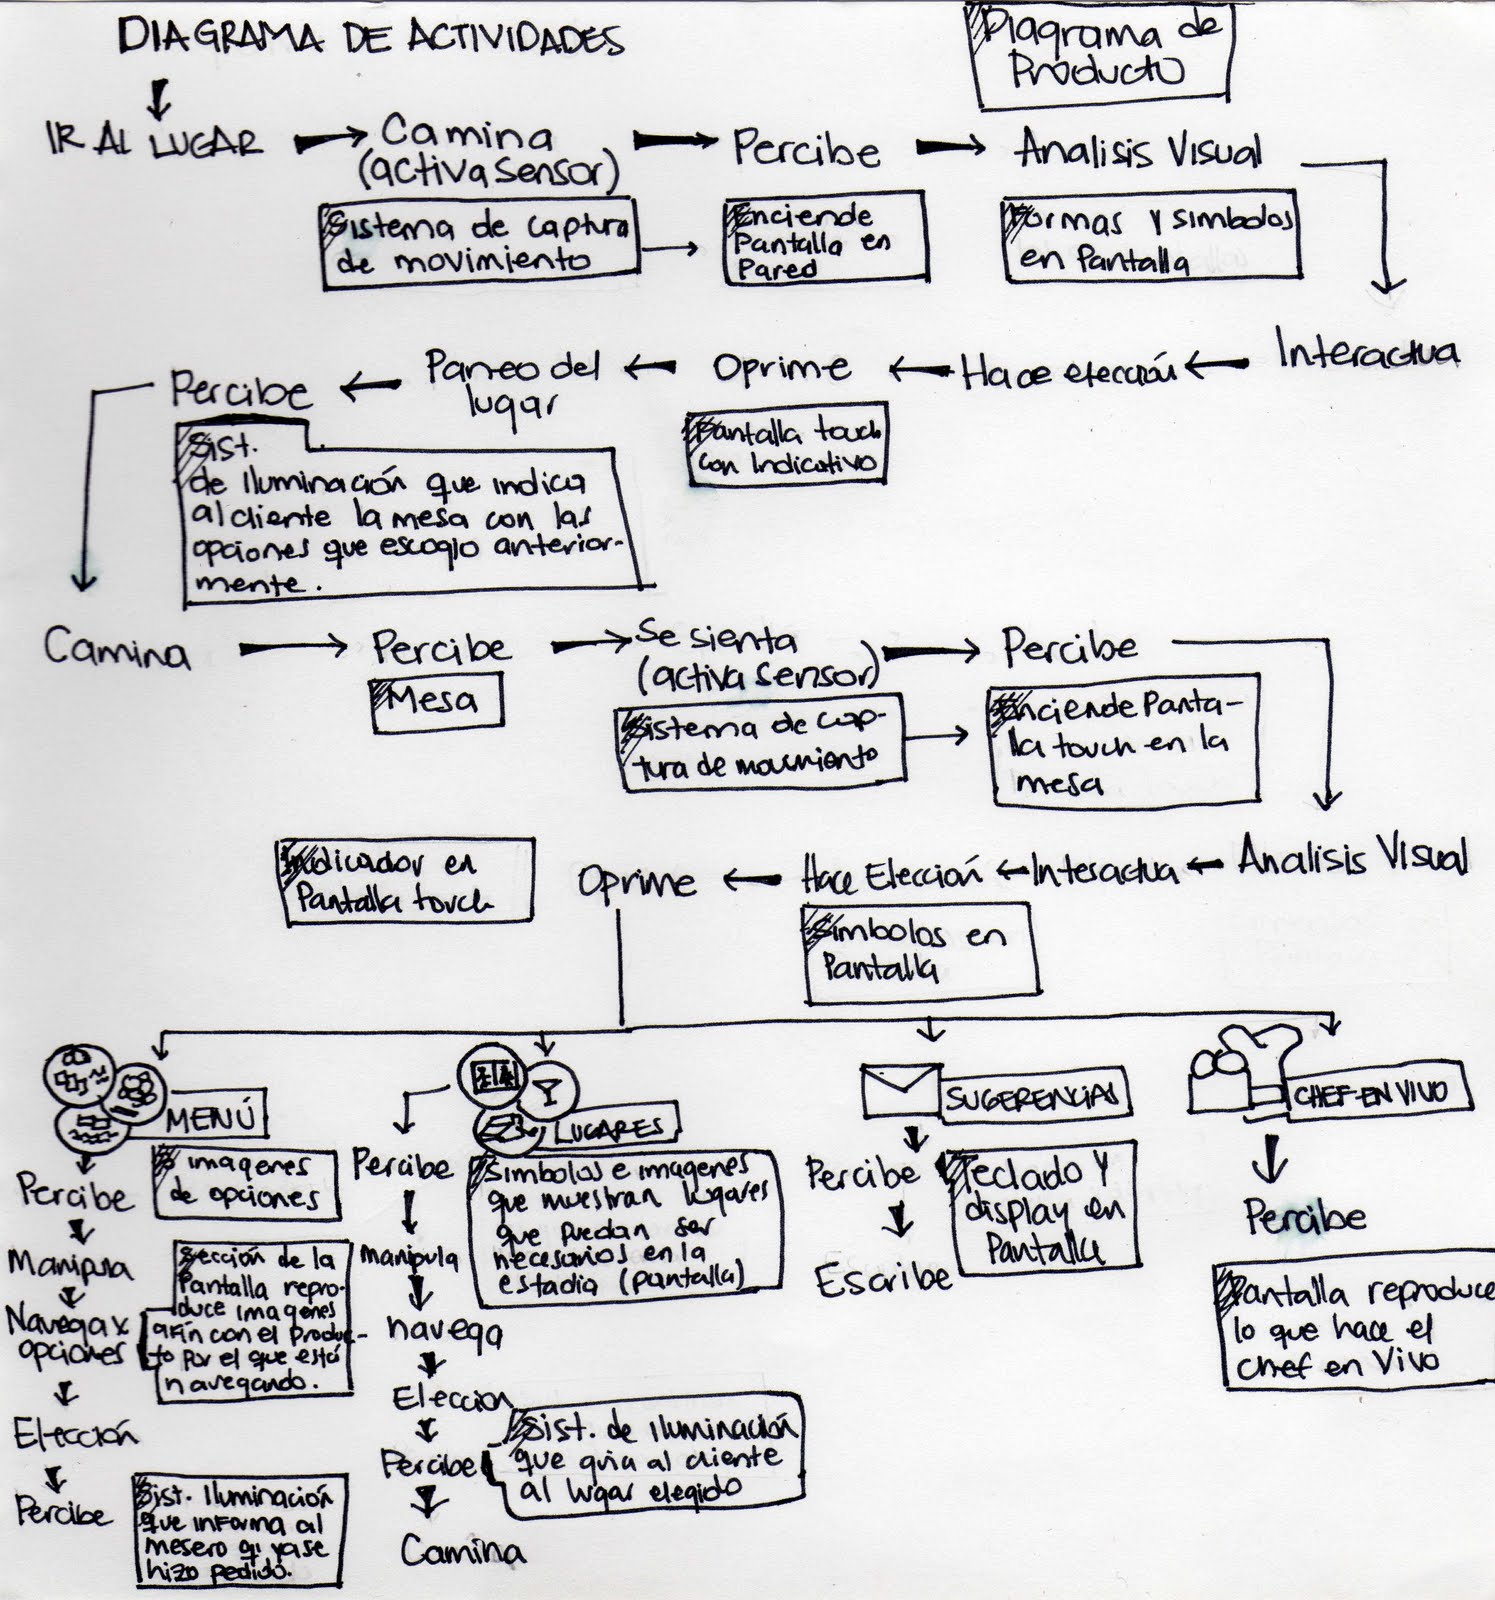 DIAGRAMA DE ACTIVIDADES
Diagrama de
Producto
IR AL LUGAR
Camina
(activa sensor)
Percibe
Analisis Visual
Sistema de captura
de movimiento
Enciende
Pantalla en
Pared
Formas y simbolos
en Pantalla
Interactua
Hace elección
Oprime
Paneo del
lugar
Percibe
Pantalla touch
con Indicativo
Sist.
de Iluminación que indica
al cliente la mesa con las
opciones que escogio anterior-
mente.
Camina
Percibe
Se sienta
(activa sensor)
Percibe
Mesa
Sistema de cap-
tura de movimiento
Enciende Panta-
lla touch en la
mesa
Analisis Visual
Interactua
Hace Elección
Oprime
Indicador en
Pantalla touch
Simbolos en
Pantalla
MENÚ
LUGARES
SUGERENCIAS
CHEF-EN VIVO
Percibe
imagenes
de opciones
Manipula
Navega x
opciones
Sección de la
Pantalla repro-
duce imagenes
afin con el produc-
to por el que está
navegando.
Elección
Percibe
Sist. Iluminación
que informa al
mesero q' ya se
hizo pedido.
Percibe
Simbolos e imagenes
que muestran lugares
que puedan ser
necesarios en la
estadia (pantalla)
manipula
navega
Eleccion
Percibe
Sist. de iluminación
que guia al cliente
al lugar elegido
Camina
Percibe
Teclado y
display en
Pantalla
Escribe
Percibe
Pantalla reproduce
lo que hace el
chef en vivo